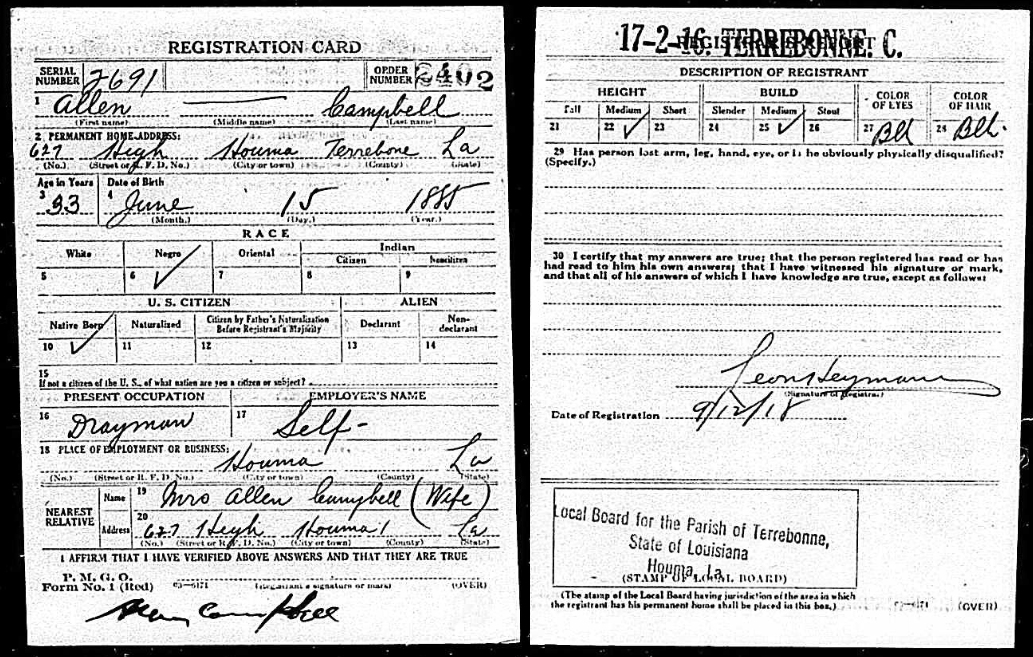 REGISTRATION CARD
SERIAL NUMBER 2691 ORDER NUMBER 2402
1 Allen Campbell
(First name) (Middle name) (Last name)
2 PERMANENT HOME ADDRESS:
627 High Houma Terrebone La
(No.) (Street or R. F. D. No.) (City or town) (County) (State)
Age in Years Date of Birth
3 33 4 June 15 1885
(Month.) (Day.) (Year.)
RACE
White Negro Oriental Indian
Citizen Noncitizen
5 6 ✓ 7 8 9
U. S. CITIZEN ALIEN
Native Born Naturalized Citizen by Father's Naturalization Before Registrant's Majority Declarant Non-declarant
10 ✓ 11 12 13 14
15
If not a citizen of the U. S., of what nation are you a citizen or subject?
PRESENT OCCUPATION EMPLOYER'S NAME
16 Drayman 17 Self-
18 PLACE OF EMPLOYMENT OR BUSINESS:
Houma La
(No.) (Street or R. F. D. No.) (City or town) (County) (State)
NEAREST RELATIVE
Name 19 Mrs Allen Campbell (Wife)
Address 20 627 High Houma La
(No.) (Street or R. F. D. No.) (City or town) (County) (State)
I AFFIRM THAT I HAVE VERIFIED ABOVE ANSWERS AND THAT THEY ARE TRUE
P. M. G. O.
Form No. 1 (Red) 03-6171 (Registrant's signature or mark) (OVER)
Allen Campbell
17-2-16. TERREBONNE. C.
DESCRIPTION OF REGISTRANT
HEIGHT BUILD COLOR OF EYES COLOR OF HAIR
Tall Medium Short Slender Medium Stout
21 22 ✓ 23 24 25 ✓ 26 27 Blk 28 Blk.
29 Has person lost arm, leg, hand, eye, or is he obviously physically disqualified?
(Specify.)
30 I certify that my answers are true; that the person registered has read or has
had read to him his own answers; that I have witnessed his signature or mark,
and that all of his answers of which I have knowledge are true, except as follows:
Leon Heymann
(Signature of Registrar.)
Date of Registration 9/12/18
Local Board for the Parish of Terrebonne,
State of Louisiana
Houma, La.
(STAMP OF LOCAL BOARD)
(The stamp of the Local Board having jurisdiction of the area in which
the registrant has his permanent home shall be placed in this box.) 03-6171 (OVER)